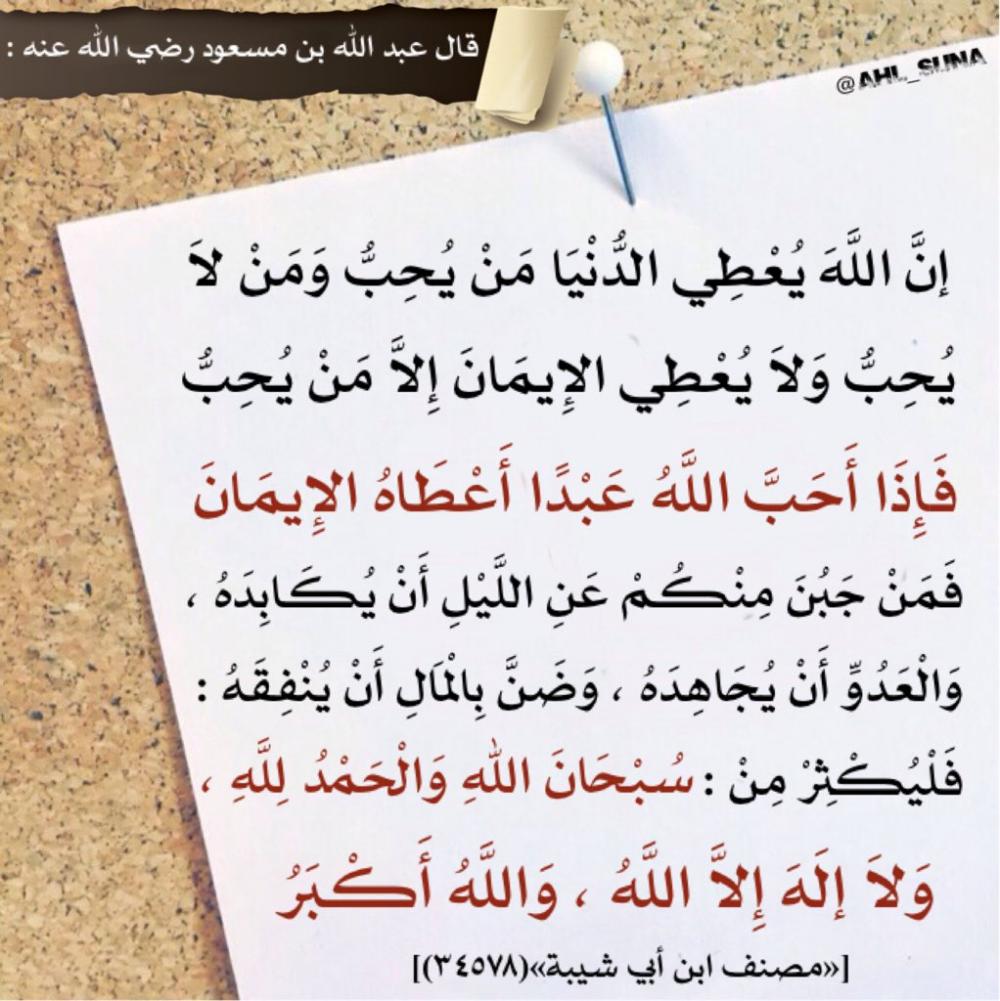 قال عبد الله بن مسعود رضي الله عنه :
@AHL_SUNA
إنَّ اللَّهَ يُعْطِي الدُّنْيَا مَنْ يُحِبُّ وَمَنْ لاَ
يُحِبُّ وَلاَ يُعْطِي الإِيمَانَ إِلاَّ مَنْ يُحِبُّ
فَإِذَا أَحَبَّ اللَّهُ عَبْدًا أَعْطَاهُ الإِيمَانَ
فَمَنْ جَبُنَ مِنْكُمْ عَنِ اللَّيْلِ أَنْ يُكَابِدَهُ ،
وَالْعَدُوِّ أَنْ يُجَاهِدَهُ ، وَضَنَّ بِالْمَالِ أَنْ يُنْفِقَهُ :
فَلْيُكْثِرْ مِنْ : سُبْحَانَ اللهِ وَالْحَمْدُ لِلَّهِ ،
وَلاَ إلَهَ إِلاَّ اللَّهُ ، وَاللَّهُ أَكْبَرُ
[«مصنف ابن أبي شيبة»(٣٤٥٧٨)]